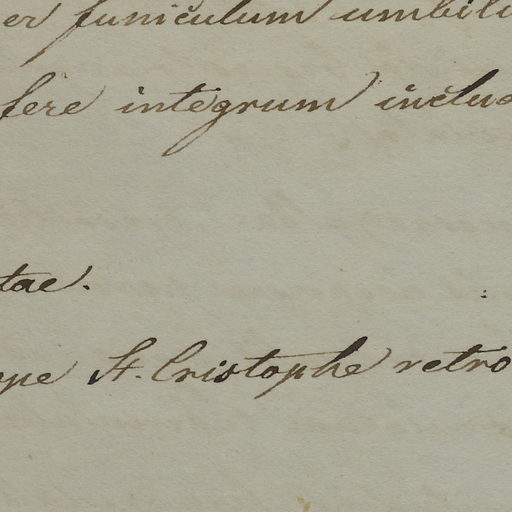 er funiculum umbili
fere integrum inclus
tae.
ope St. Cristophe retro